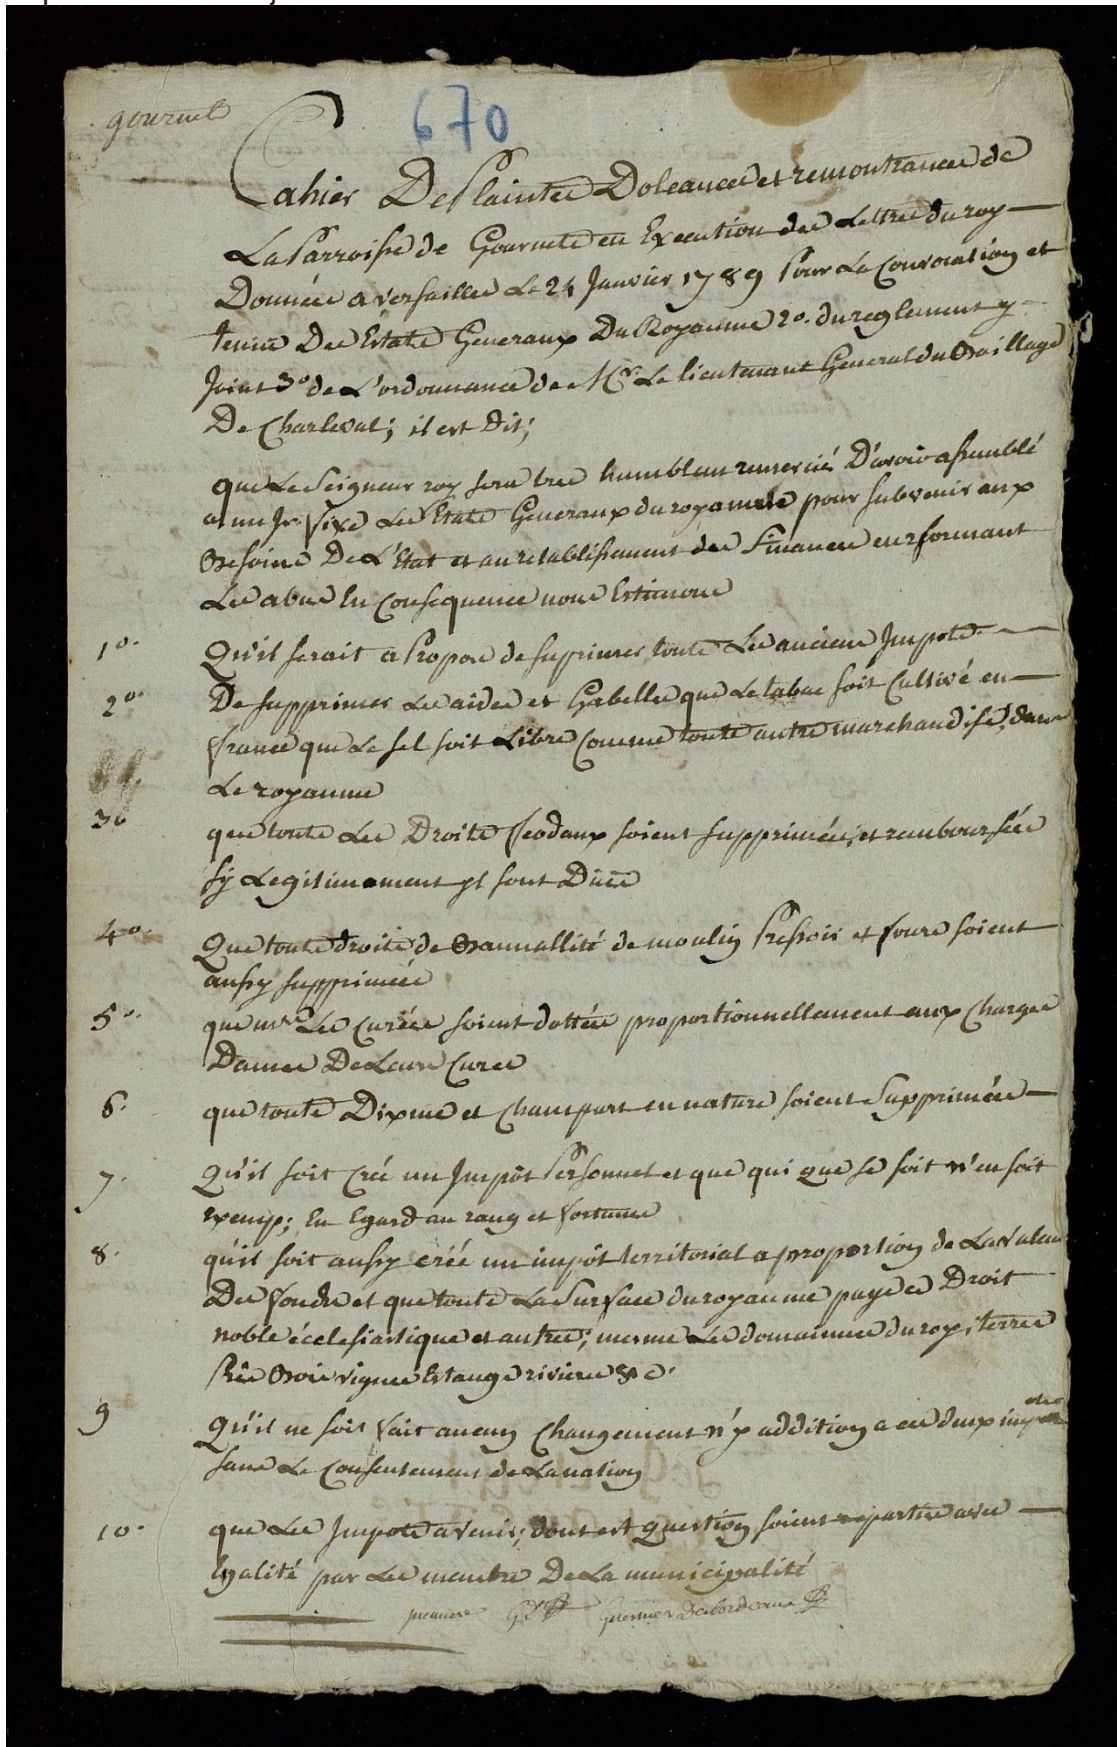 gournets
670
Cahier De Plaintes Doleances et remontrances de
La Parroisse de Gournets en Execution des Lettres du roy
Données a versailles Le 24 Janvier 1789 Pour La Convocation et
tenüe Des Etats Generaux Du Royaume 2o. du reglement y
Joint 3o de L'ordonnance de Mr. Le lieutenant General du Baillage
De Charleval; il est Dit;
que Le Seigneur roy sera tres humblem remercié D'avoir assemblé
a un Jr. fixe Les Etats Generaux du royaume pour subvenir aux
Besoins De L'Etat et au retablissement des Finances en reformant
Les abus En Consequence nous Estimons
1o. Qu'il serait a Propos de suprimer touts Les anciens Impots
2o. De supprimer Les aides et Gabelles que Le tabac soit Cultivé en
france que Le sel soit Libre Comme toute autre marchandise dans
Le royaume
3o que touts Les Droits feodaux soient supprimées, et remboursées
sy Legitimement yl sont Dües
4o. Que touts droits de Bannallité de moulin Pressoir et fours soient
aussy supprimées
5o. que mrs Les Curées soient dottées proportionnellement aux Charges
D'ames De Leurs Cures
6. que toute Dixme et Champart en nature soient Supprimées
7. Qu'il soit Créé un Impôt Personnel et que qui que se soit n'en soit
exemp; En Egard au rang et fortunes
8. qu'il soit aussy créé un impôt territorial a proportion de La valeur
Des fonds et que toute La Surface du royaume paye ce Droit
noble écclesiastique et autres; mesme Les domainnes du roy, terres
Prés Bois vignes Estangs rivieres &c.
9 Qu'il ne soit fait aucun Changement n'y addition a ces deux impots
sans Le Consentement de La nation
10. que Les Impots a venir, dont est question soient repartis avec
Egalité par Les membres De La municipalité
premiere Guesnier Desbordeaux